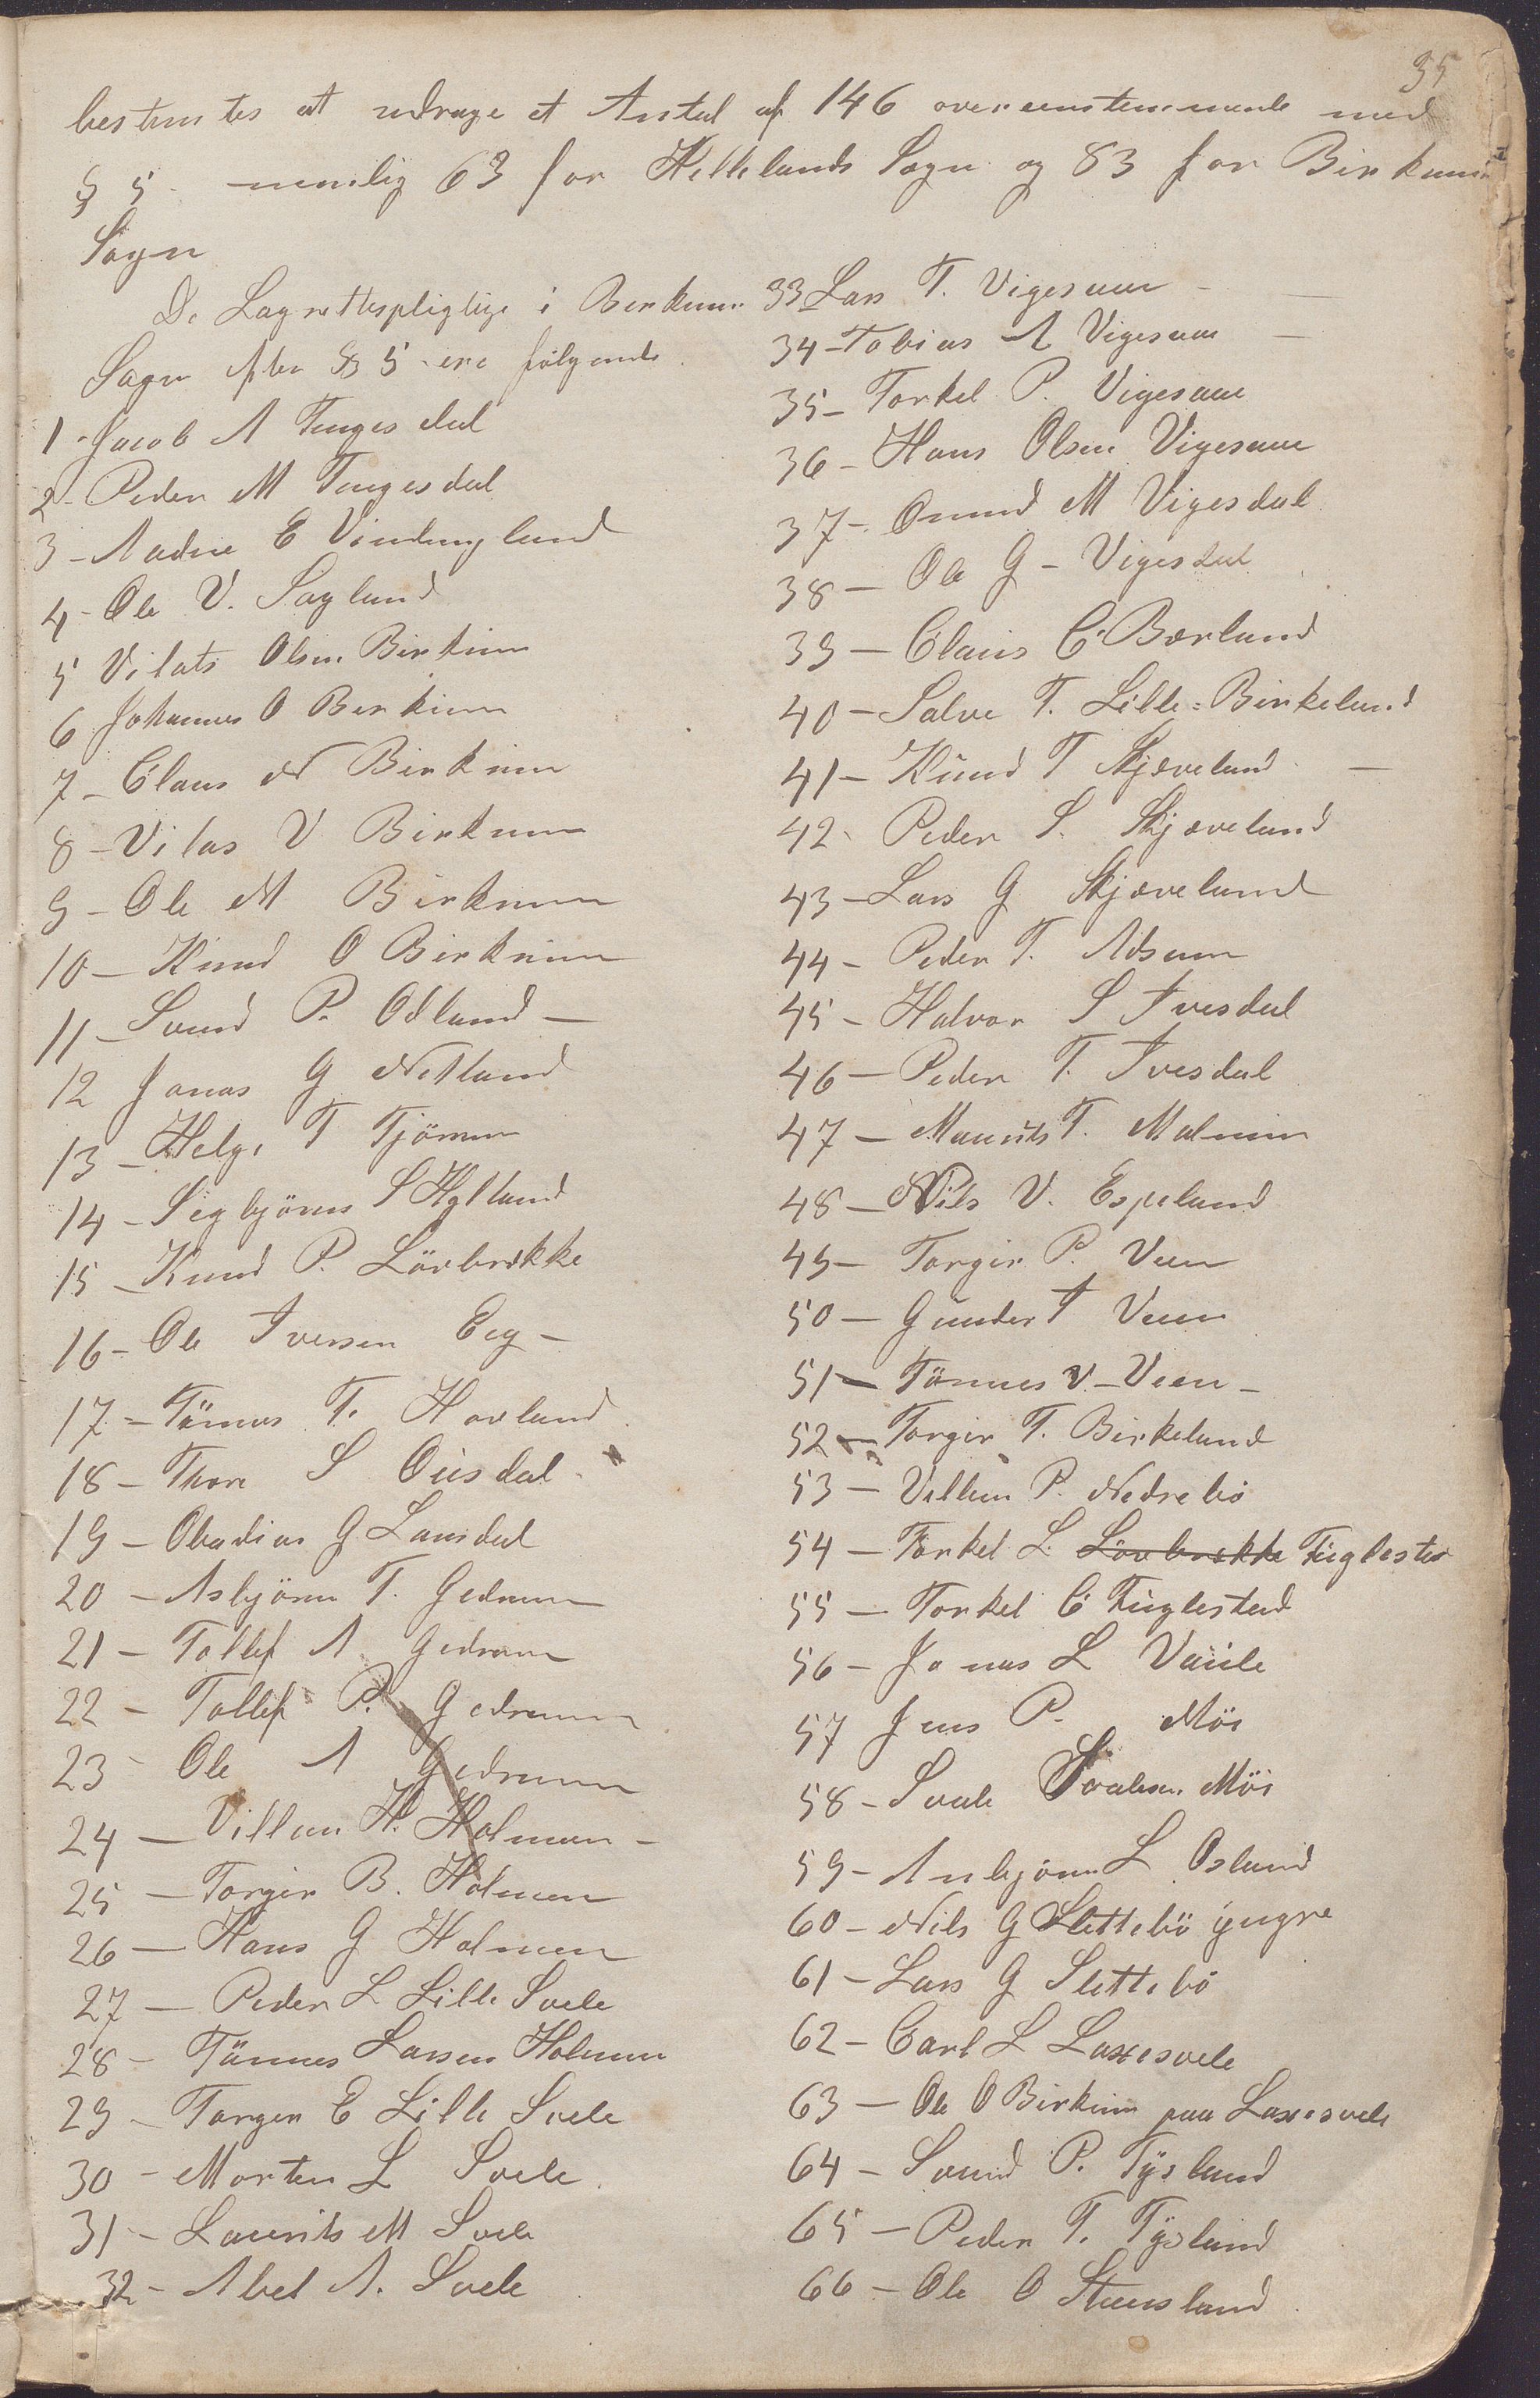 35
bestemtes at udrage et Antal af 146 overeensstemmende med
§ 5 nemlig 63 for Hellelands Sogn og 83 for Birkrems
Sogn
De Lagrettespligtige i Birkrem
Sogn efter § 5 ere følgende
1 - Jacob A Tengesdal
2 - Peder M Tengesdal
3 - Aadne E Vindingland
4 - Ole V. Sagland
5 Vilats Olsen Birkrem
6 Johannes O Birkrem
7 - Claus N Birkrem
8 - Vilas V Birkrem
9 - Ole M Birkrem
10 - Knud O Birkrem
11 - Svend P. Odland -
12 Jonas G Netland
13 - Helge T Tjörnn
14 - Segbjörn S Hylland
15 - Knud P. Lövbrække
16 - Ole Iversen Eeg -
17 - Tönnes T. Hovland
18 - Thore S Ousdal
19 - Obadias G Lausdal
20 - Asbjörn T. Gedrem
21 - Tollef A Gedrem
22 - Tollef P. Gedrem
23 - Ole A Gedrem
24 - Villum H. Holmen -
25 - Torger B. Holmen
26 - Hans G Holmen
27 - Peder L Lille Svele
28 - Tönnes Larsen Holmen
29 - Torger E Lille Svele
30 - Morten L Svele
31 - Laurits M Svele
32 - Abel A. Svele
33 Lars T. Vigesaae -
34 - Tobias A Vigesaae -
35 - Torkel P. Vigesaae
36 - Hans Olsen Vigesaae
37 - Omund M Vigesdal
38 - Ole G - Vigesdal
39 - Claus C Bærland
40 - Salve T. Lille=Birkeland
41 - Knud T Skjæveland -
42 - Peder S. Skjæveland
43 - Lars G Skjæveland
44 - Peder T. Adsem
45 - Halvor S Ivesdal
46 - Peder T. Ivesdal
47 - Maurits T. Malmin
48 - Nils V. Espeland
49 - Torger P. Veen
50 - Gunder T Veen
51 - Tönnes V - Veen -
52 - Torger T. Birkeland
53 - Villum P. Nedrebö
54 - Torkel L Lövbrække Fuglestad
55 - Torkel C Fuglestad
56 - Jonas L Vaule
57 Jens P. Möi
58 - Svale Svalesen Möi
59 - Anbjörn L Osland
60 - Nils G Slettebö yngre
61 - Lars G Slettebö
62 - Carl L Laxesvele
63 - Ole O Birkrem paa Laxesvele
64 - Svend P. Tysland
65 - Peder T. Tysland
66 - Ole O Steensland